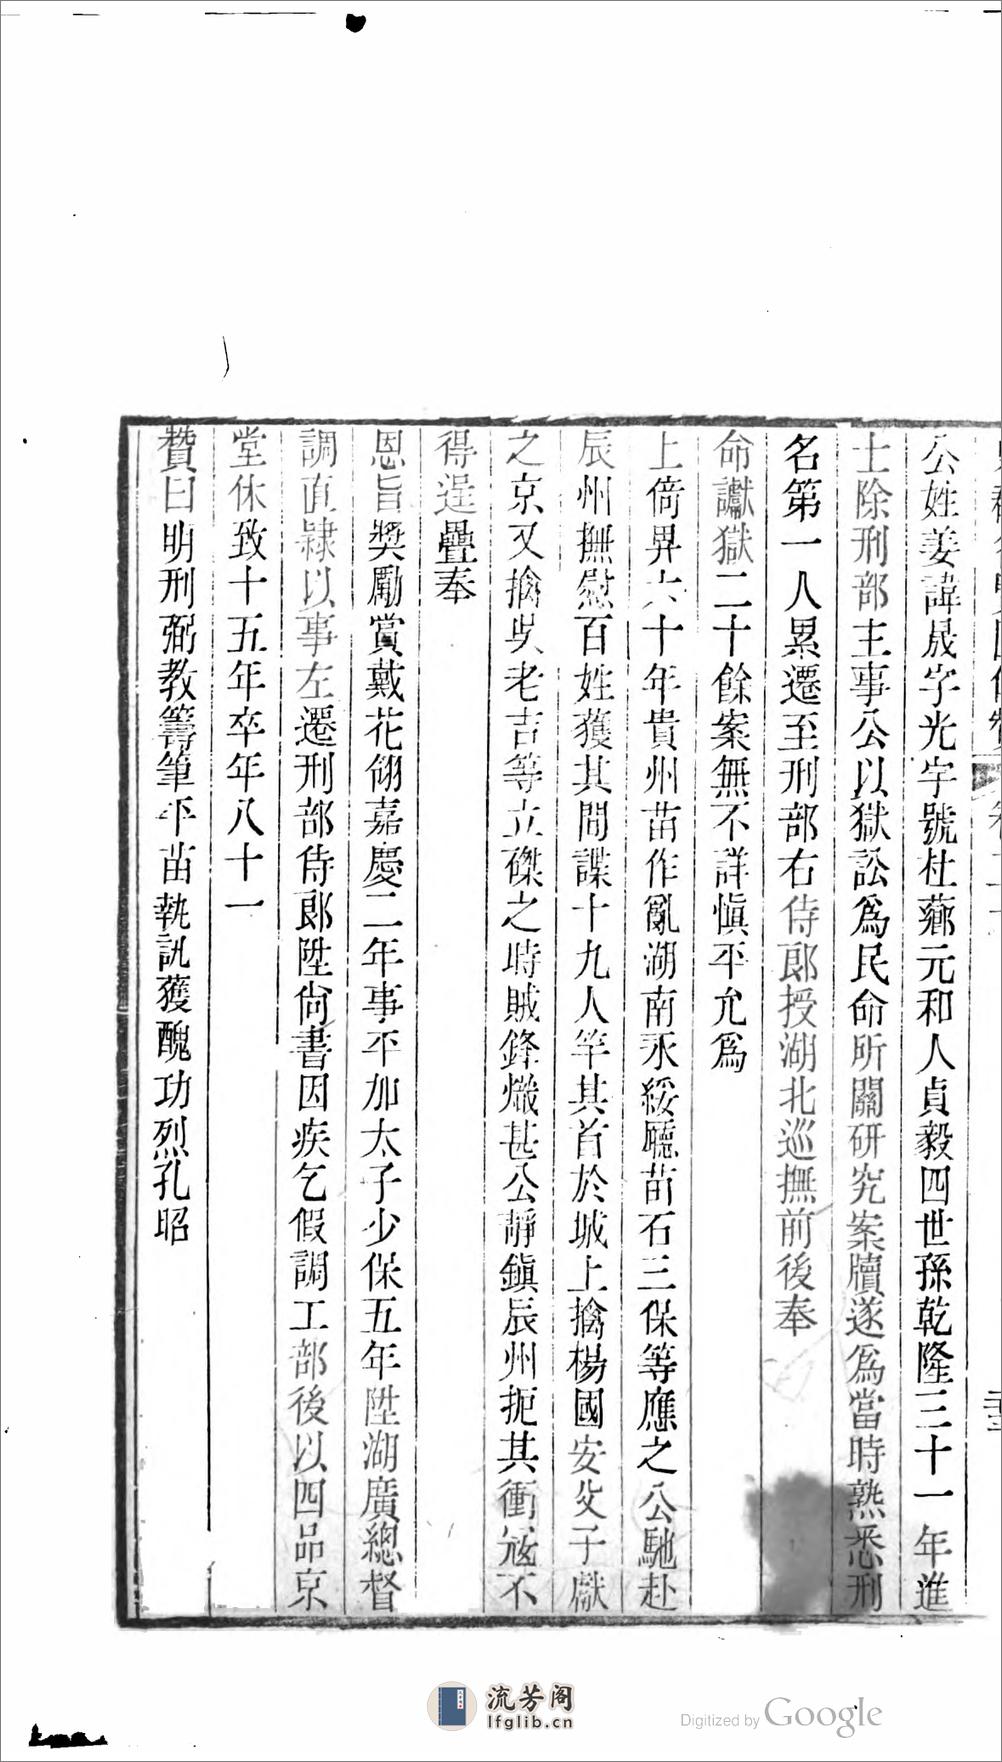 公姓姜諱晟字光宇號杜薌元和人貞毅四世孫乾隆三十一年進
士除刑部主事公以獄訟爲民命所關研究案牘遂爲當時熟悉刑
名第一人累遷至刑部右侍郎授湖北巡撫前後奉
命讞獄二十餘案無不詳愼平允爲
上倚畀六十年貴州苗作亂湖南永綏廳苗石三保等應之公馳赴
辰州撫慰百姓獲其間諜十九人竿其首於城上擒楊國安父子獻
之京又擒吳老吉等立磔之時賊鋒熾甚公靜鎭辰州扼其衝寇不
得逞疊奉
恩旨獎勵賞戴花翎嘉慶二年事平加太子少保五年陞湖廣總督
調直隸以事左遷刑部侍郎陞尙書因疾乞假調工部後以四品京
堂休致十五年卒年八十一
贊曰明刑弼教籌筆平苗執訊獲醜功烈孔昭
流芳阁
lfglib.cn
Digitized by Google